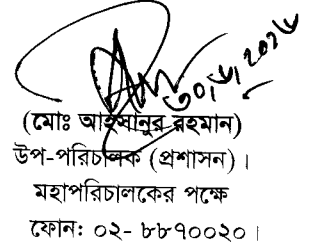 ৩০/৬/২০১৬
(মোঃ আহসানুর রহমান)
উপ-পরিচালক (প্রশাসন)।
মহাপরিচালকের পক্ষে
ফোন: ০২- ৮৮৭০০২০।